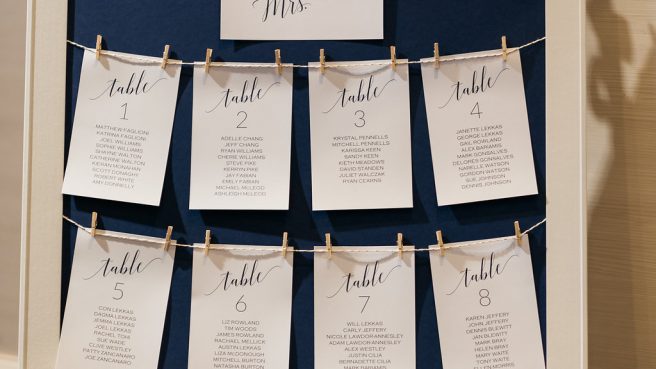 Mrs.
table
1
MATTHEW FAGLIONI
KATRINA FAGLIONI
JOEL WILLIAMS
SOPHIE WILLIAMS
SHAYNE WALTON
CATHERINE WALTON
KIERAN MONAHAN
SCOTT DONAGHY
ROBERT WHITE
AMY DONNELLY
table
2
ADELLE CHANG
JEFF CHANG
RYAN WILLIAMS
CHERIE WILLIAMS
STEVE PIKE
KERRYN PIKE
JAY FABIAN
EMILY FABIAN
MICHAEL MCLEOD
ASHLEIGH MCLEOD
table
3
KRYSTAL PENNELLS
MITCHELL PENNELLS
KARISSA KEEN
SANDY KEEN
KIETH MEADOWS
DAVID STANDEN
JULIET WALCZAK
RYAN CLEARNS
table
4
JANETTE LEKKAS
GEORGE LEKKAS
GAIL ROWLAND
ALEX BARAMIS
MARK GONSALVES
DELORES GONSALVES
NARELLE WATSON
GORDON WATSON
SUE JOHNSON
DENNIS JOHNSON
table
5
CON LEKKAS
DAGMA LEKKAS
JEMMA LEKKAS
JOEL LEKKAS
RACHEL TOHI
SUE WADE
CLIVE WESTLEY
PATTY ZANCANARO
JOE ZANCANARO
table
6
LIZ ROWLAND
TIM WOODS
JAMES ROWLAND
RACHAEL MELLICK
AUSTIN LEKKAS
LIZA MCDONOUGH
MITCHELL BURTON
NATASHA BURTON
table
7
WILL LEKKAS
CARLY JEFFERY
NICOLE LAWDOR-ANNESLEY
ADAM LAWDOR-ANNESLEY
ALEX WESTLEY
JUSTIN CILIA
BERNADETTE CILIA
MARK BARAMIS
table
8
KAREN JEFFERY
JOHN JEFFERY
DENNIS BLEWITT
JAN BLEWITT
MARK BRAY
HELEN BRAY
MARY WAITE
TONY WAITE
ELLEN MORRIS